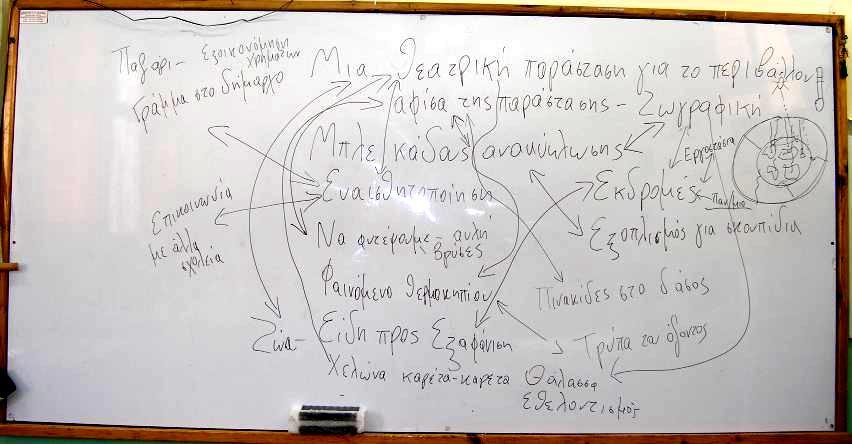 Παζάρι - Εξοικονόμηση χρημάτων
Γράμμα στο δήμαρχο
Μια θεατρική παράσταση για το περιβάλλον
αφίσα της παράστασης - Ζωγραφική
Μπλε κάδας ανακύκλωσης
Εργοστάσια
Εναισθητοποίηση
Εκδρομές
Επικοινωνία
με άλλα
σχολεία
Να φυτέψουμε - αυλή
βρύσες
Εξοπλισμός για σκουπίδια
Φαινόμενο θερμοκηπίου
Πινακίδες στο δάσος
Ζώα - Είδη προς Εξαφάνιση
Τρύπα του όζοντος
Χελώνα καρέτα-καρέτα
Θάλασσα
Εθελοντισμός